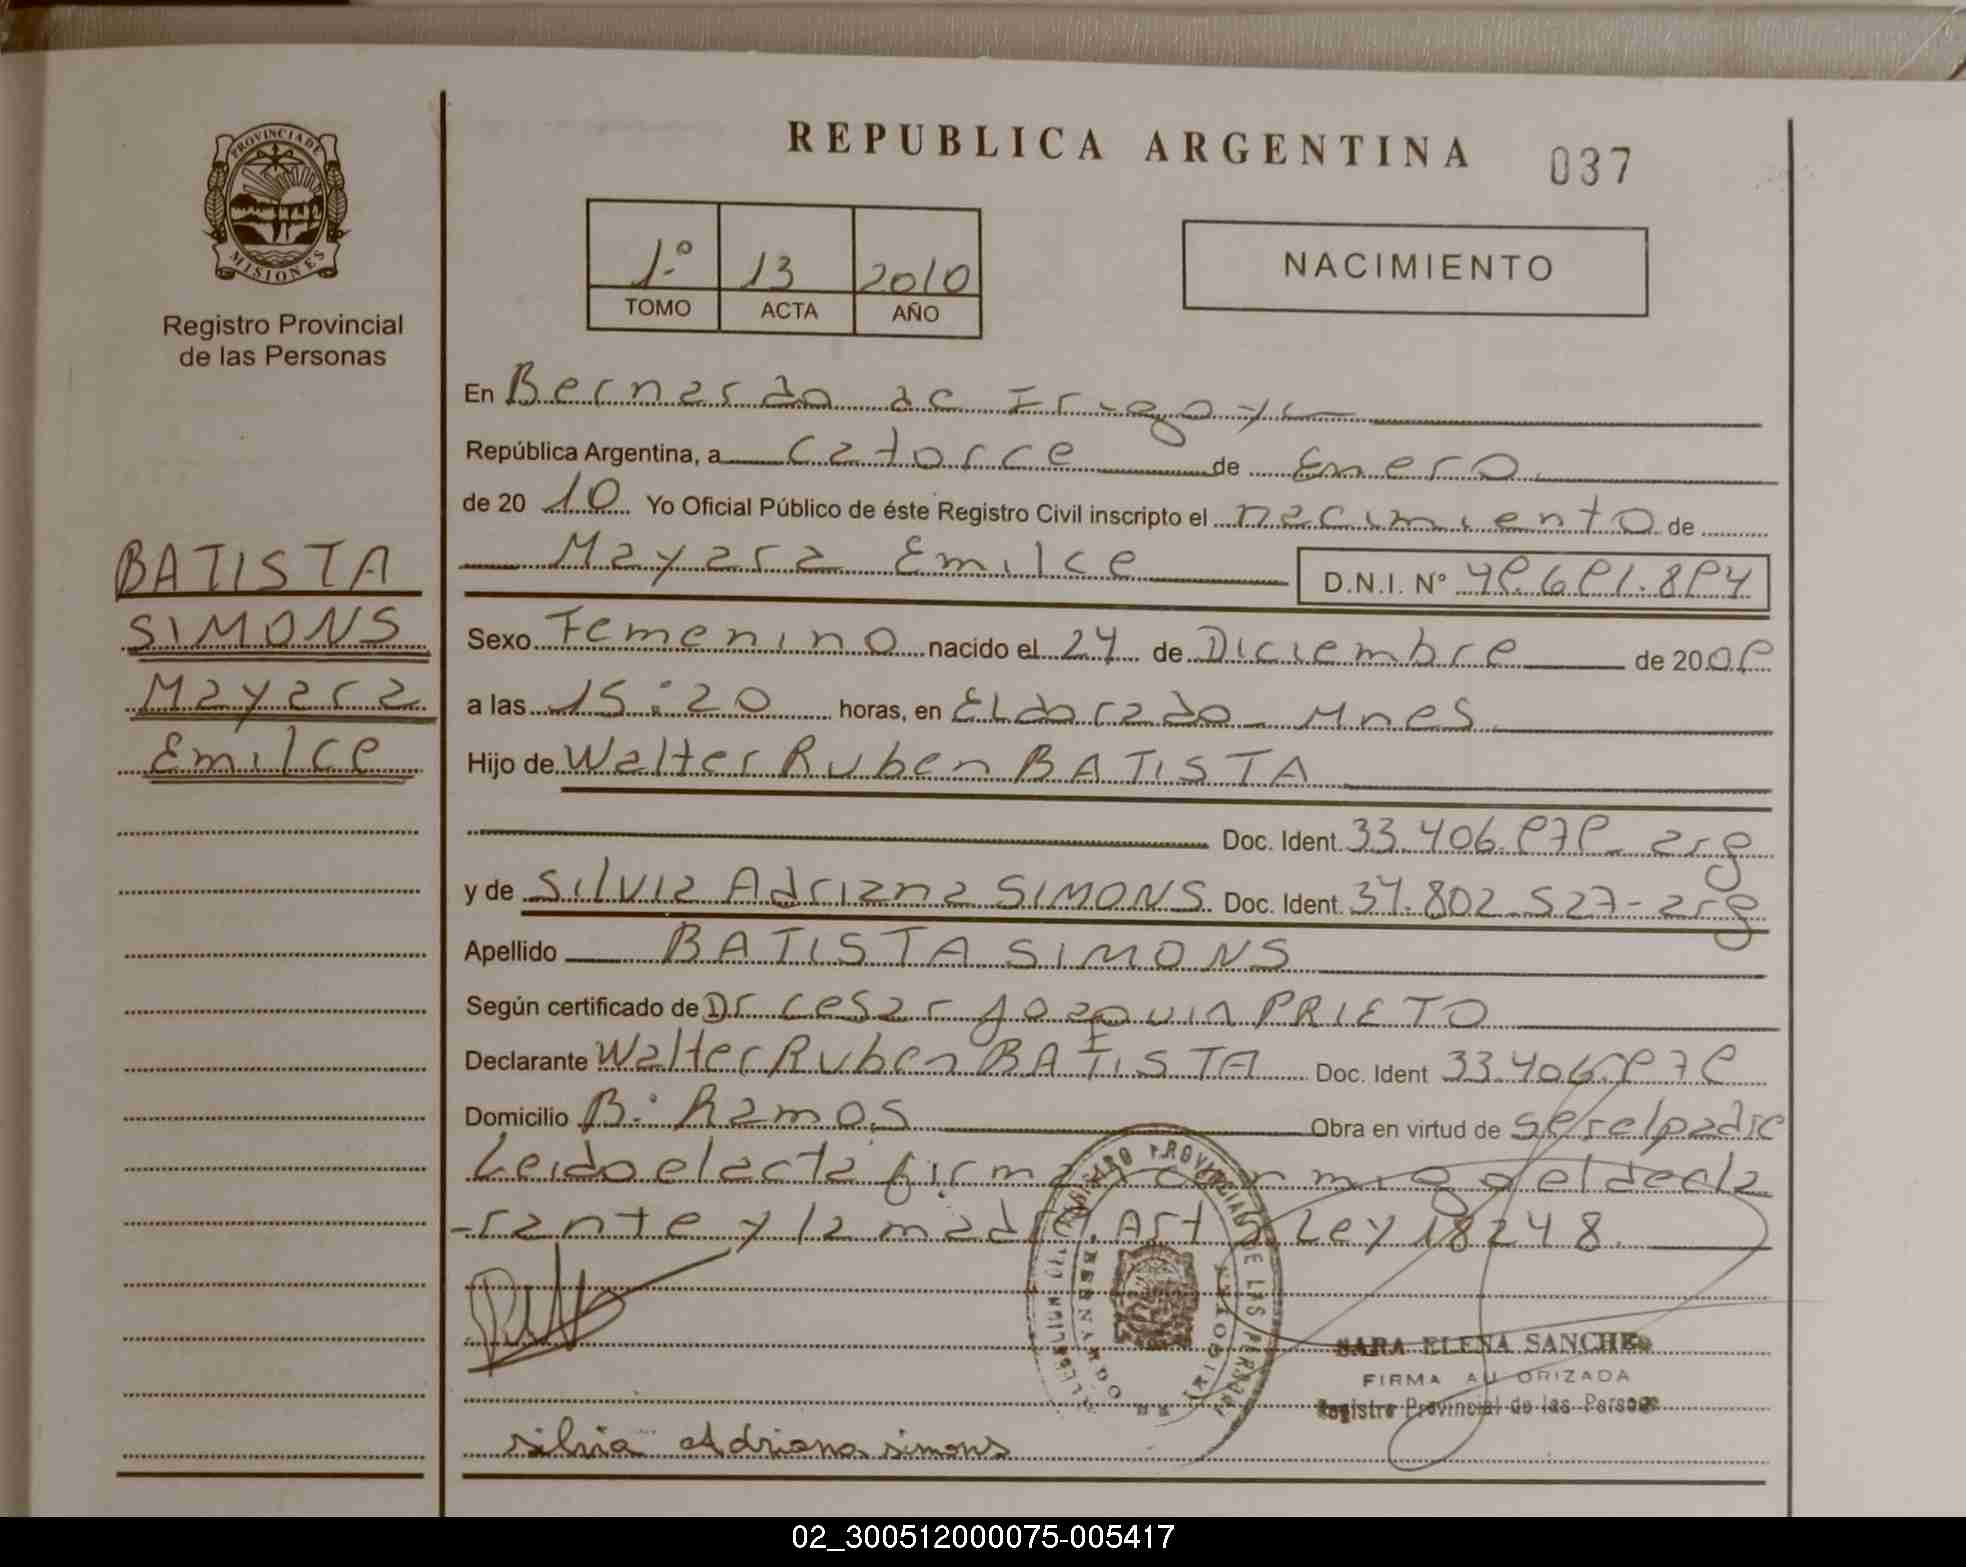 REPUBLICA ARGENTINA 037
PROVINCIA DE
MISIONES
Registro Provincial
de las Personas
1º 13 2010
TOMO ACTA AÑO
NACIMIENTO
BATISTA
SIMONS
Mayara
Emilce
En Bernardo de Irigoyen
República Argentina, a catorce de Enero
de 2010 Yo Oficial Público de éste Registro Civil inscripto el nacimiento de
Mayara Emilce D.N.I. Nº 49.691.894
Sexo Femenino nacido el 24 de Diciembre de 2009
a las 15:20 horas, en Eldorado - Mnes
Hijo de Walter Ruben BATISTA
Doc. Ident. 33.406.979 - arg
y de Silvia Adriana SIMONS Doc. Ident. 34.802.527 - arg
Apellido BATISTA SIMONS
Según certificado de Dr Cesar Joaquin PRIETO
Declarante Walter Ruben BATISTA Doc. Ident 33.406.979
Domicilio Bº Ramos Obra en virtud de ser el padre
Leido el acta firma conmigo el decla
-rante y la madre Art 5 Ley 18248
REGISTRO PROVINCIAL DE LAS PERSONAS
BERNARDO
SARA ELENA SANCHEZ
FIRMA AUTORIZADA
Registro Provincial de las Personas
silvia Adriana simons
02_300512000075-005417